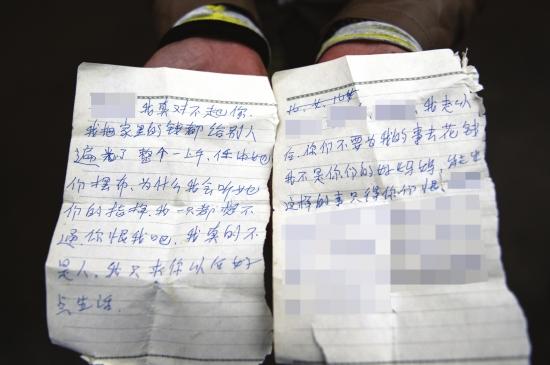 我真对不起你.
我把家里的钱都给别人
遍光了整个一上午,任由他
们摆布,为什么我会听他
们的指挥.我一只都想不
通你恨我吧,我真的不
是人,我只求你以后好
点生活.
我走以
后.你们不要为我的事去花钱
我不是你们的好妈妈,
这样的事只得你们恨.